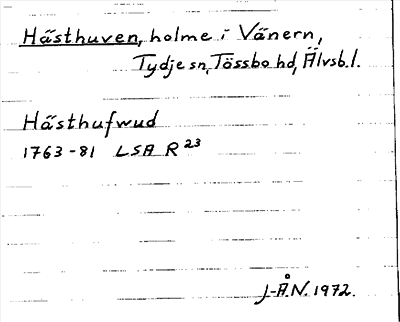 Hästhuven, holme i Vänern,
Tydje sn, Tössbo hd, Älvsb. l.
Hästhufwud
1763-81 LSA R 23
J-Å.N. 1972.